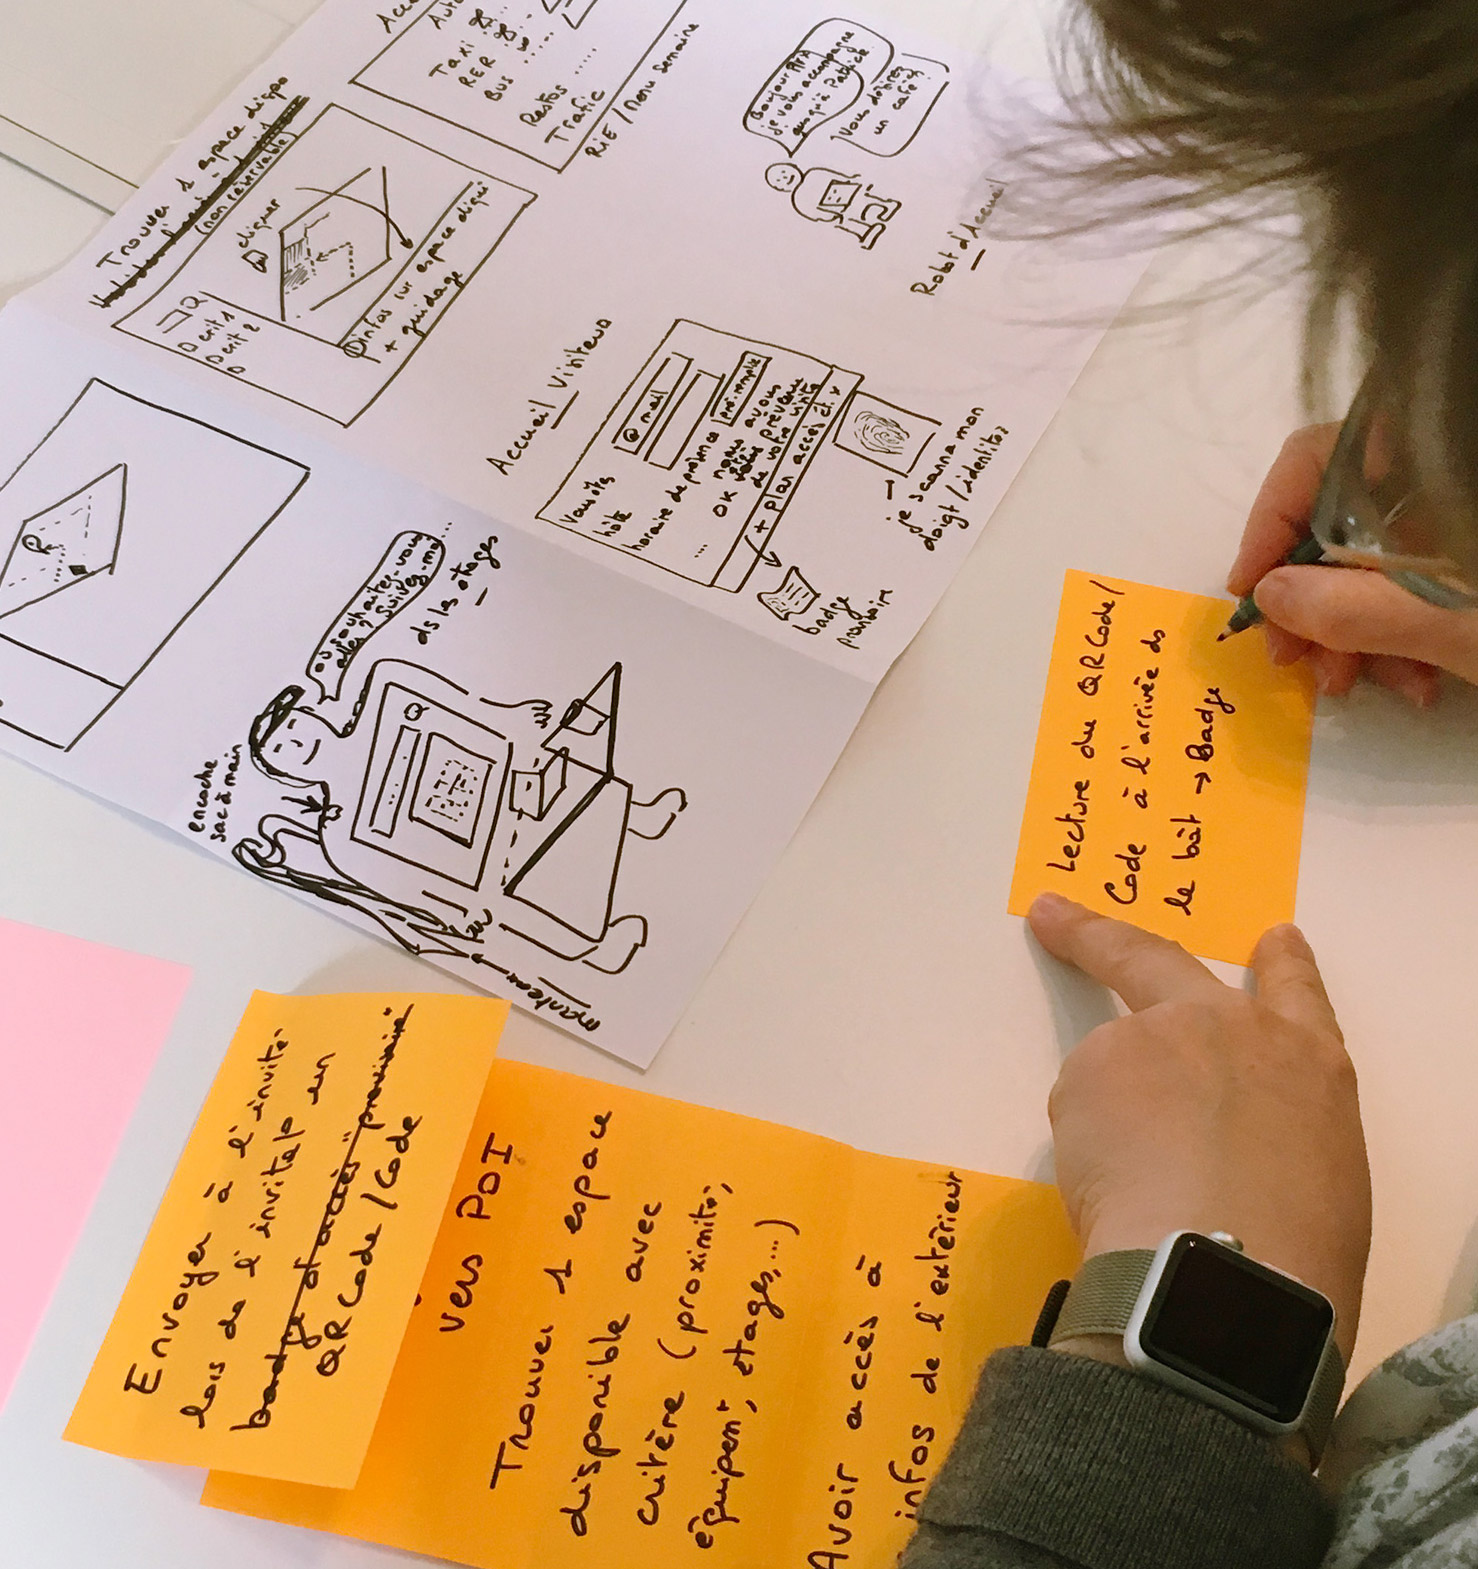 Auto
Taxi
RER
BUS
Restos .....
Trafic
RiE / Menu Semaine
Trouver 1 espace dispo
(non réservable)
cliquer
Q
crit 1
crit 2
infos sur espace dispo
+ guidage
Bonjour
je vous accompagne
jusqu'à Patrick
Vous désirez
un café ?
Robot d'Accueil
Accueil Visiteurs
Vous êtes
@ mail
hôte
horaire de
pré-remplie
...
OK nous avons
prévenu
de votre visite
+ plan accès
je scanne mon
doigt / identité
badge
provisoire
où souhaitez-vous
aller ? Suivez-moi
ds les étages...
encoche
sac à main
Q
manteau
Lecture du QR Code /
Code à l'arrivée ds
le bât → Badge
Envoyer à l'invité
lors de l'invitat° un
badge d'accès "provisoire"
QR Code / Code
vers POI
Trouver 1 espace
disponible avec
critère (proximité,
équipem^t, étages,...)
Avoir accès à
infos de l'extérieur